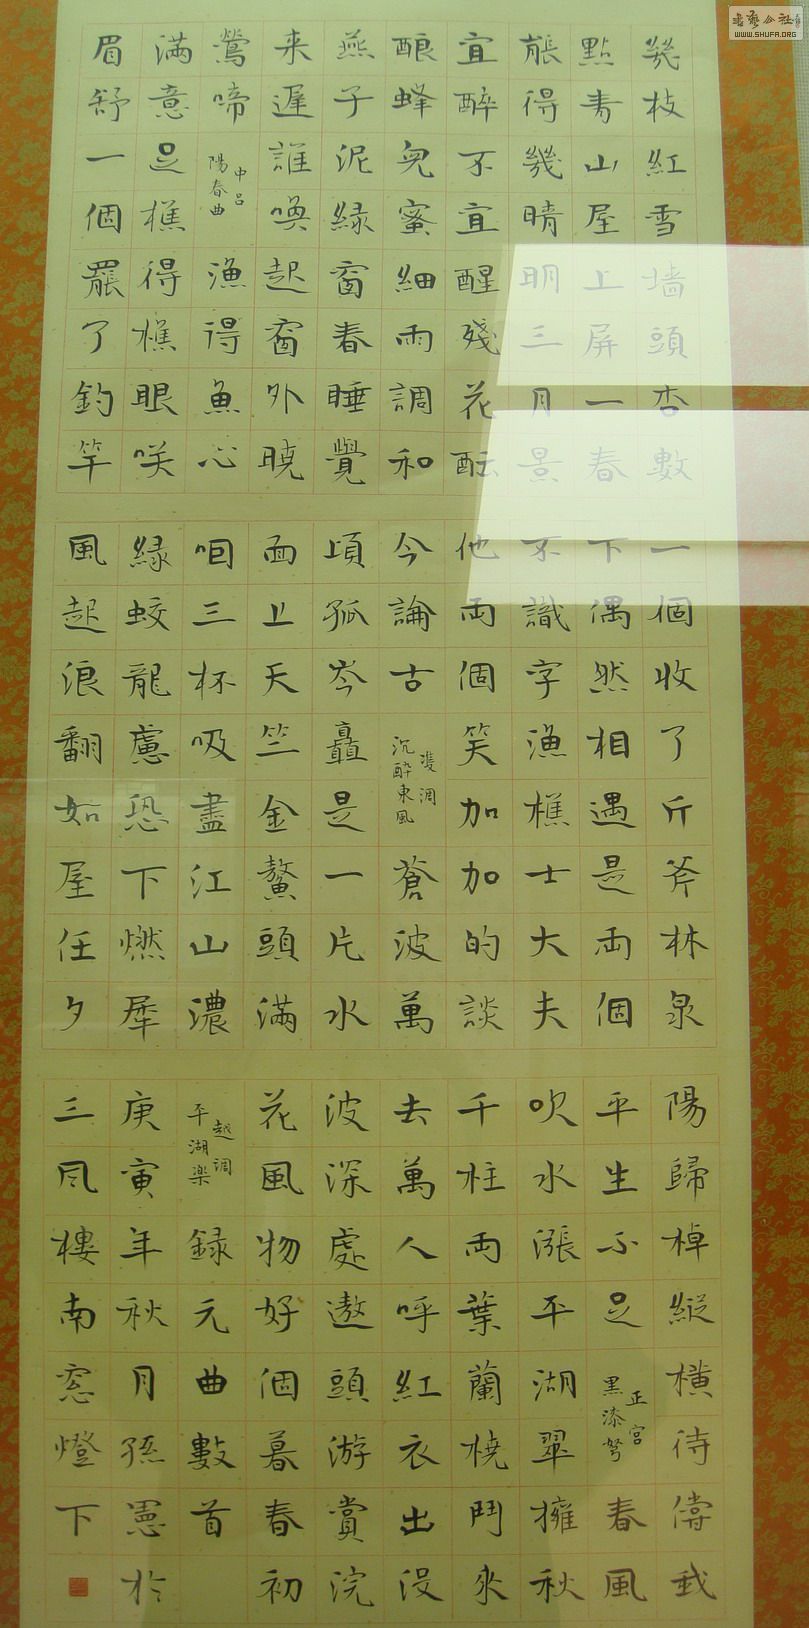 幾枝紅雪墻頭杏數
點青山屋上屏一春
能得幾晴明三月景
宜醉不宜醒殘花酝
釀蜂兒蜜細雨調和
燕子泥緑窗春睡覺
来遲誰喚起窗外曉
鶯啼 中吕 陽春曲 漁得魚心
满意足樵得樵眼咲
眉舒一個罷了釣竿
一個收了斤斧林泉
下偶然相遇是兩個
不識字漁樵士大夫
他兩個笑加加的談
今論古 雙調 沉醉東風 蒼波萬
頃孤岑矗是一片水
面上天竺金鰲頭满
咽三杯吸盡江山濃
緑蛟龍慮恐下燃犀
風起浪翻如屋任夕
陽歸棹縱橫待償我
平生不足 正宮 黑漆弩 春風
吹水漲平湖翠擁秋
千柱兩葉蘭橈鬥来
去萬人呼紅衣出没
波深處遨頭游賞浣
花風物好個暮春初
越調 平湖樂 録元曲數首
庚寅年秋月孫憲於
三風樓南窓燈下
書藝公社
WWW.SHUFA.ORG